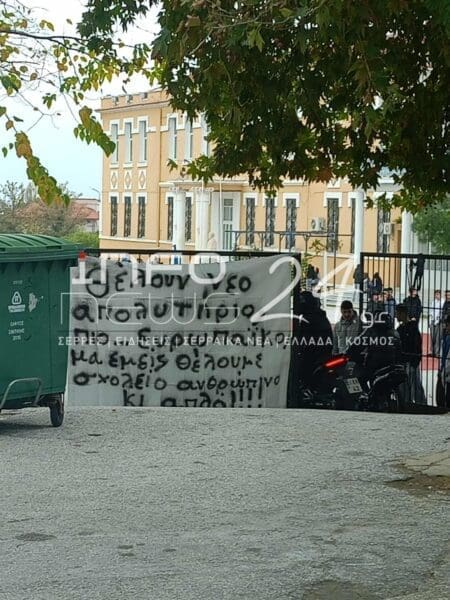 Θέλουν νέο
απολυτήριο
μα εμείς θέλουμε
σχολείο ανθρώπινο
κι απλό!!!!
INFO
news24.gr
ΣΕΡΡΕΣ | ΕΙΔΗΣΕΙΣ | ΣΕΡΡΑΪΚΑ ΝΕΑ | ΕΛΛΑΔΑ | ΚΟΣΜΟΣ